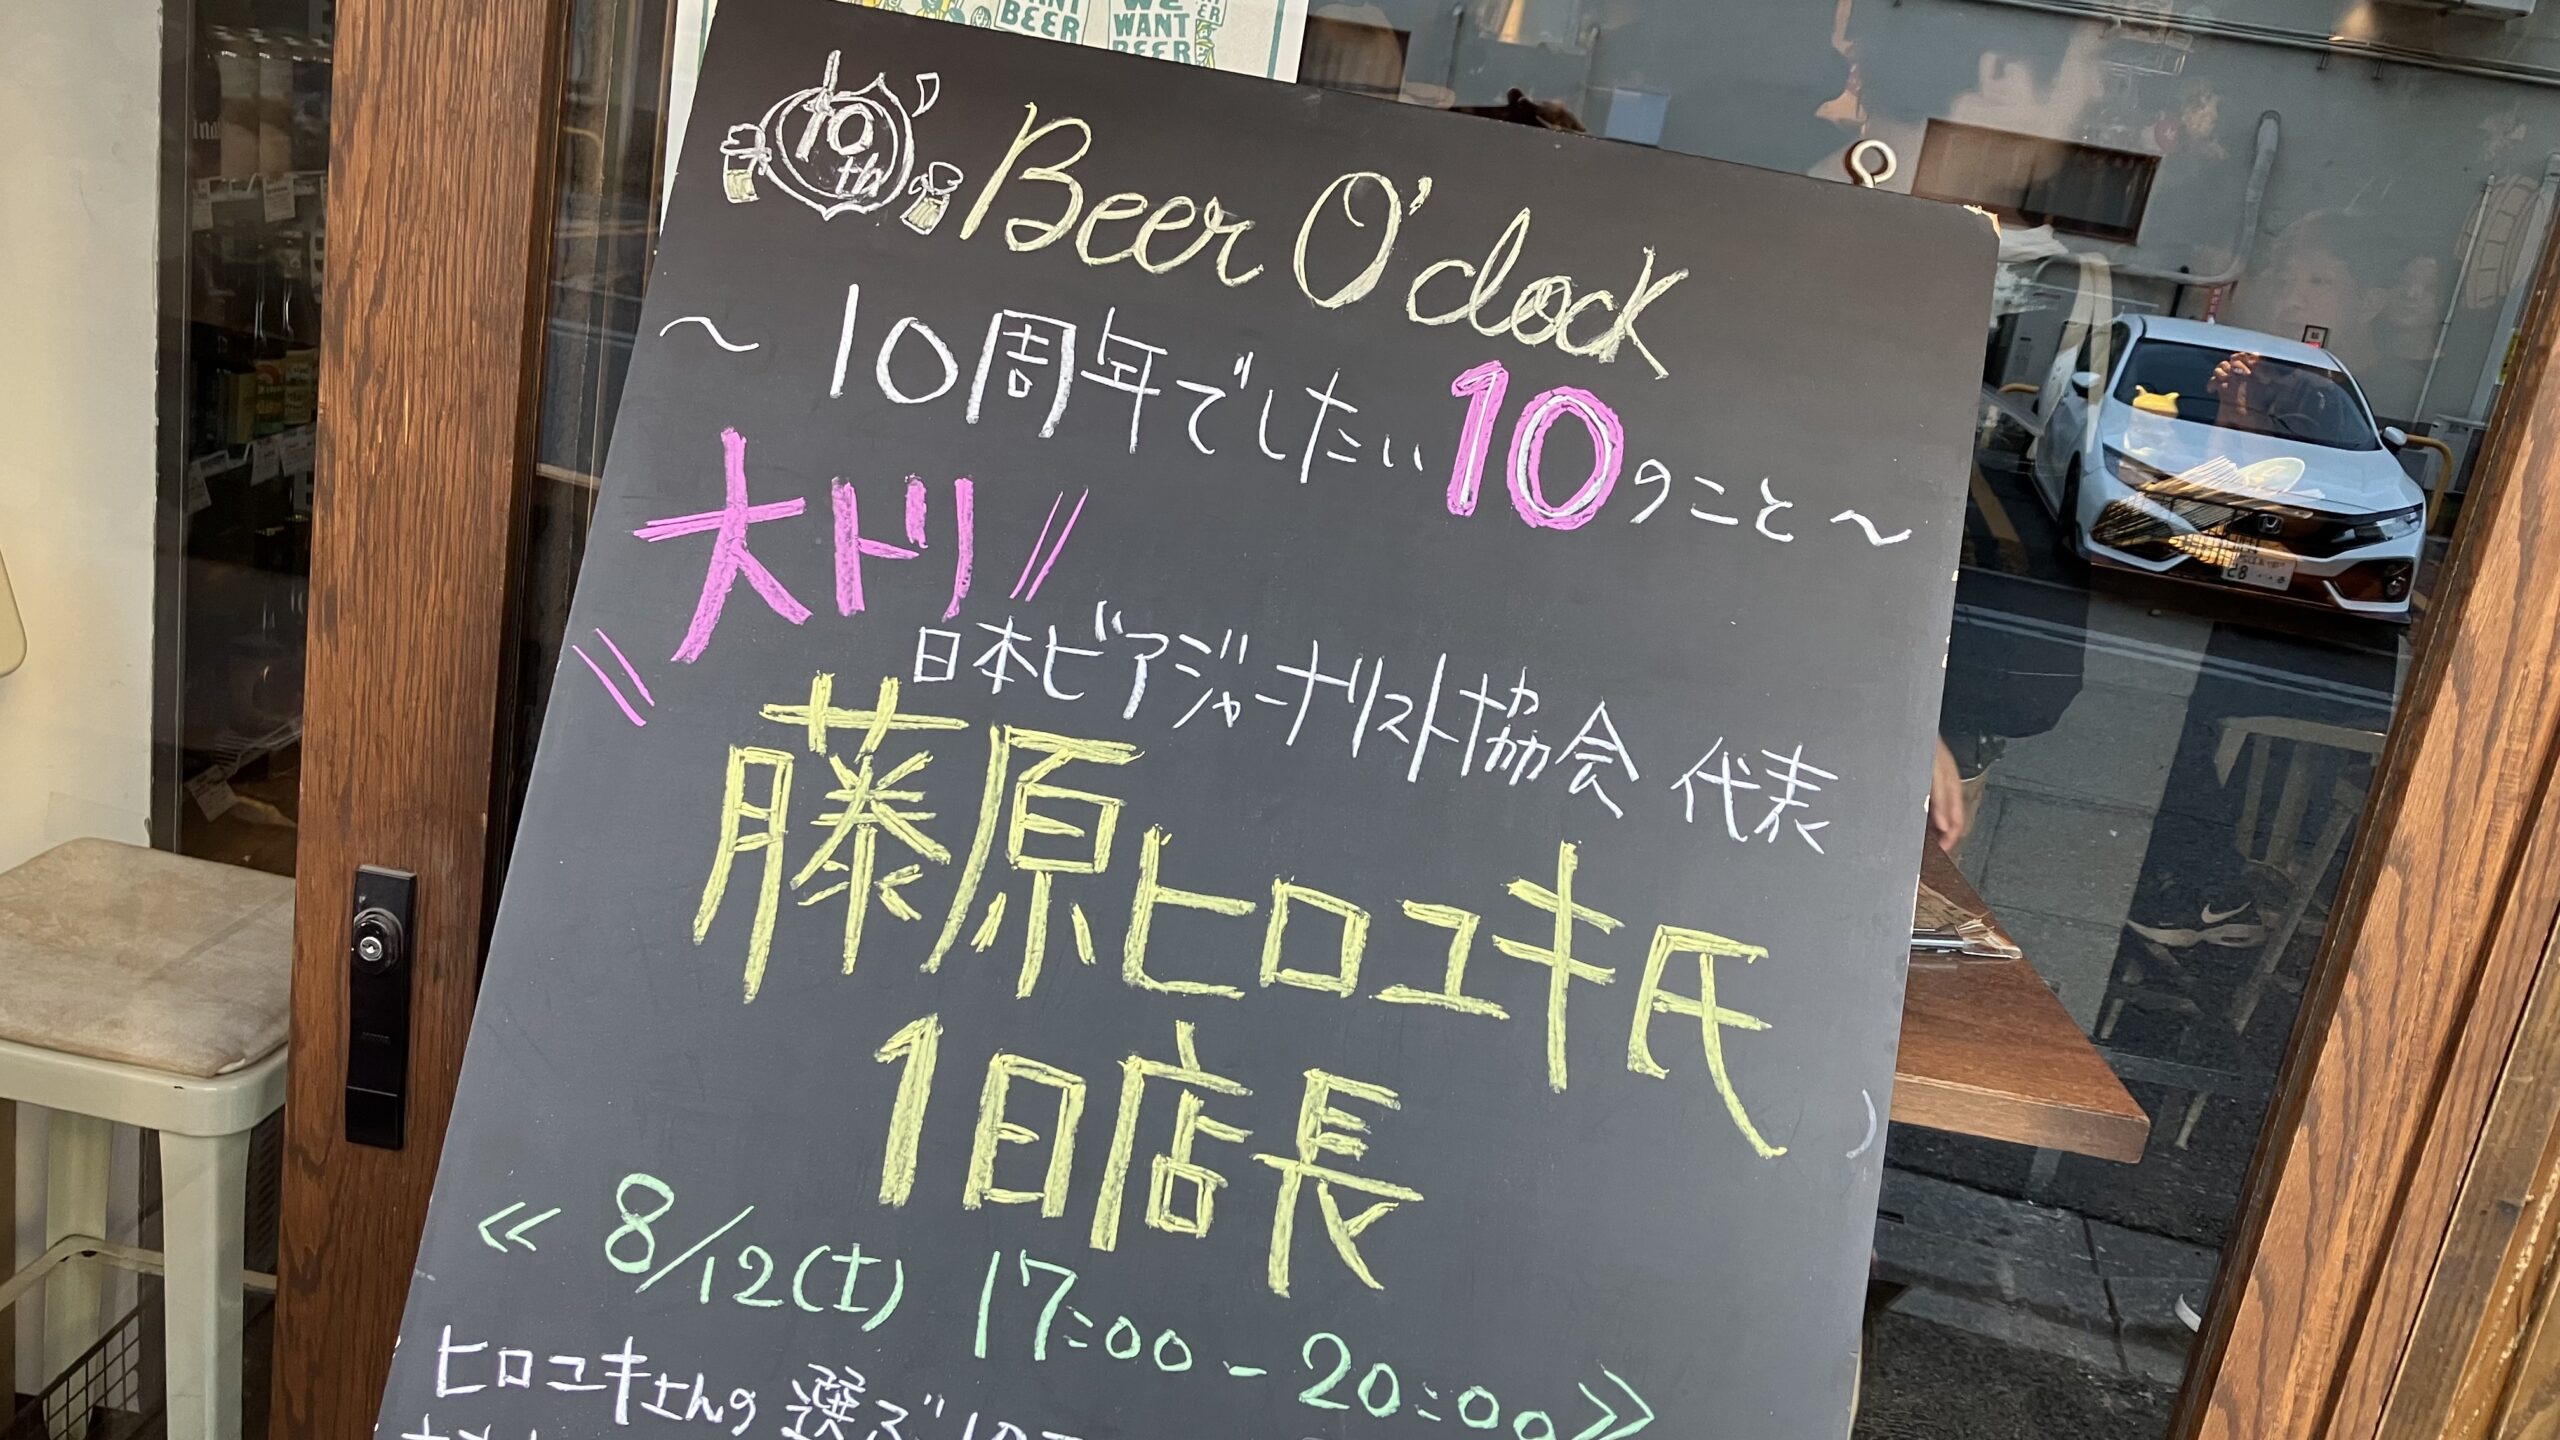 WANT BEER
WE WANT BEER
BEER
10th
Beer O'clock
〜10周年でしたい10のこと〜
大トリ
日本ビアジャーナリスト協会 代表
藤原ヒロユキ氏
1日店長
≪ 8/12(土) 17:00-20:00≫
ヒロユキさんの選ぶ10